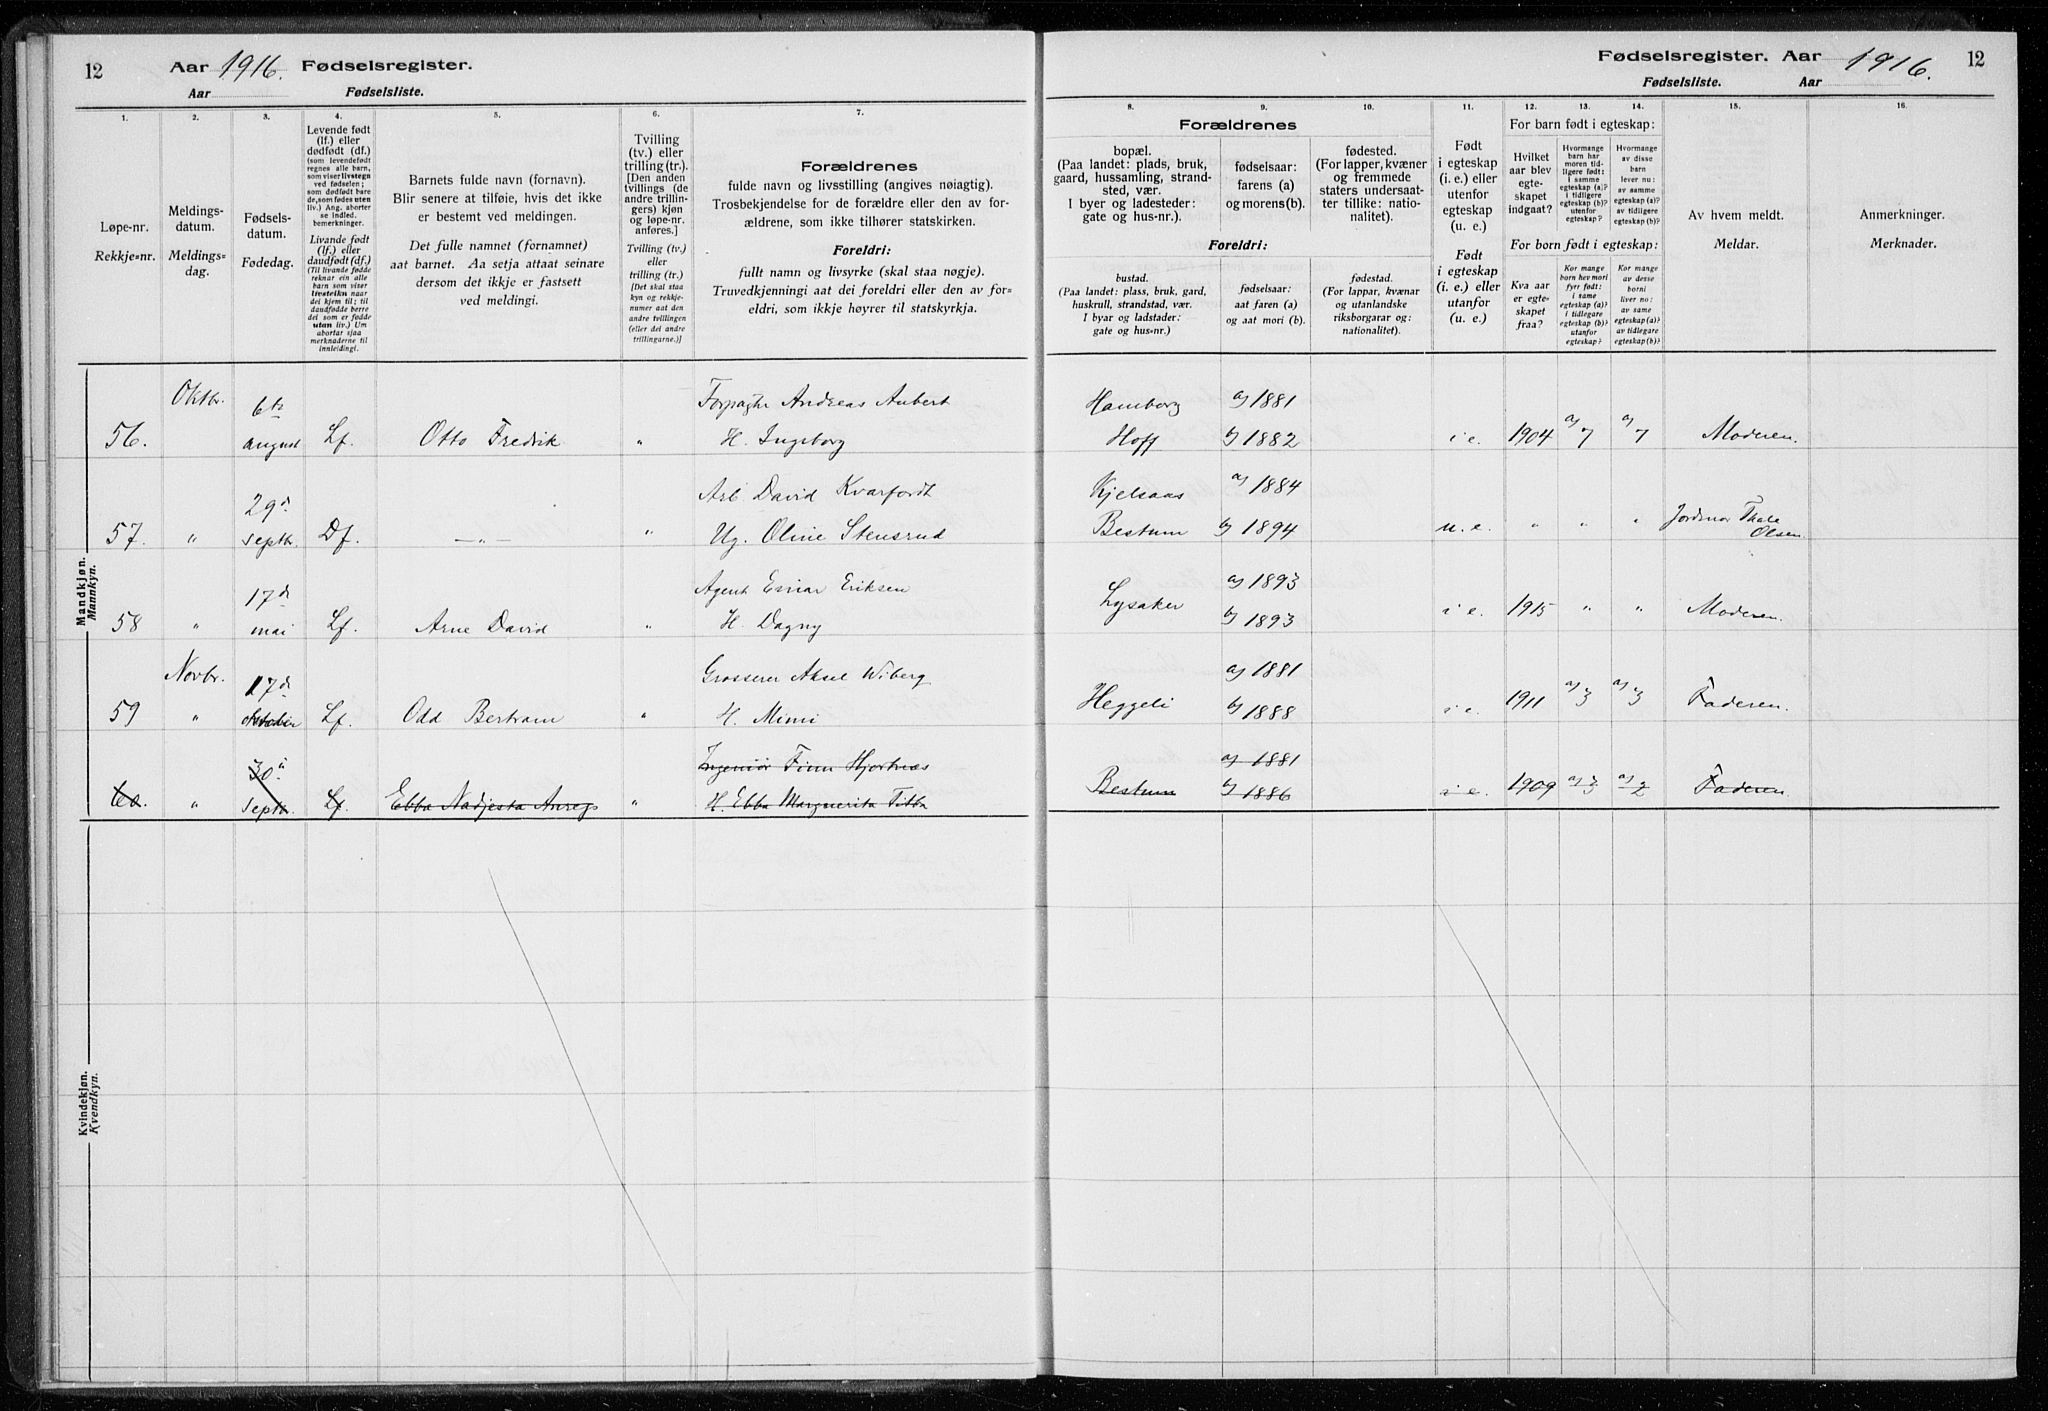 12 Aar 1916. Fødselsregister.
Aar Fødselsliste.
Fødselsregister. Aar 1916. 12
Fødselsliste. Aar
1. 2. 3. 4. 5. 6. 7. 8. 9. 10. 11. 12. 13. 14. 15. 16.
Løpe-nr.
Rekkje=nr.
Meldings-
datum.
Meldings=
dag.
Fødsels-
datum.
Fødedag.
Levende født
(lf.) eller
dødfødt (df.)
(som levendefødt
regnes alle barn,
som viser livstegn
ved fødselen;
som dødfødt bare
de, som fødes uten
liv.) Ang. aborter
se indled.
bemerkninger.
Livande fødde
(lf.) eller
daudfødt (df.)
(Til livande fødde
reknar ein alle
born som viser
livsteikn naar
dei kjem til; til
daudfødde berre
dei som er fødde
utan liv.) Um
abortar sjaa
merknaderne til
innleidingi.
Barnets fulde navn (fornavn).
Blir senere at tilføie, hvis det ikke
er bestemt ved meldingen.
Det fulle namnet (fornamnet)
aat barnet. Aa setja attaat seinare
dersom det ikkje er fastsett
ved meldingi.
Tvilling
(tv.) eller
trilling (tr.).
[Den anden
tvillings (de
andre trillin-
gers) kjøn
og løpe-nr.
anføres.]
Tvilling (tv.)
eller
trilling (tr.)
[Det skal staa
kyn og rekkje-
numer aat den
andre tvillingen
(eller dei andre
trillingarne.)]
Forældrenes
fulde navn og livsstilling (angives nøiagtig).
Trosbekjendelse for de forældre eller den av for-
ældrene, som ikke tilhører statskirken.
Foreldri:
fullt namn og livsyrke (skal staa nøgje).
Truvedkjenningi aat dei foreldri eller den av for=
eldri, som ikkje høyrer til statskyrkja.
Forældrenes
bopæl.
(Paa landet: plads, bruk,
gaard, hussamling, strand-
sted, vær.
I byer og ladesteder:
gate og hus-nr.).
fødselsaar:
farens (a)
og morens (b).
fødested.
(For lapper, kvæner
og fremmede
staters undersaat-
ter tillike: natio-
nalitet).
Foreldri:
bustad.
(Paa landet: plass, bruk, gard,
huskrull, strandstad, vær.
I byar og ladstader:
gate og hus=nr.)
fødselsaar:
aat faren (a)
og aat mori (b).
fødestad.
(For lappar, kvænar
og utanlandske
riksborgarar og:
nationalitet).
Født
i egteskap
(i. e.) eller
utenfor
egteskap
(u. e.)
Født
i egteskap
(i. e.) eller
utanfor
(u. e.)
For barn født i egteskap:
Hvilket
aar blev
egte-
skapet
indgaat?
Hvormange
barn har
moren tid-
ligere født:
i samme
egteskap (a)?
i tidligere
egteskap (b)?
utenfor
egteskap?
Hvormange
av disse
barn
lever nu:
av samme
egteskap (a)?
av tidligere
egteskap (b)?
For born født i egteskap:
Kva aar
er egte-
skapet
fraa?
Kor mange
born hev mori
fyrr født:
i same
egteskap (a)?
i tidlegare
egteskap (b)?
utanfor
egteskap?
Kor mange
av desse
borni
liver no:
av same
egteskap (a)?
av tidlegare
egteskap (b)?
Av hvem meldt.
Meldar.
Anmerkninger.
Merknader.
Mandkjøn.
Mannkyn.
56. Oktbr. 6te august Lf. Otto Fredrik " Forpagtr Andreas Aubert
H. Ingeborg Hamborg Hoff a) 1881 b) 1882 i e. 1904 a) 7 a) 7 Moderen.
57. " 29d septbr. Df. —„— " Arb David Kvarfordt
Ug. Oline Stensrud Kjelsaas Bestum a) 1884 b) 1894 u. e. " " " Jordmor Thale Olsen.
58 " 17d mai Lf. Arne David " Agent Einar Eriksen
H. Dagny Lysaker a) 1893 b) 1893 i e. 1915 " " Moderen.
59 Novbr. " 17d Lf. Odd Bertram " Grosserer Aksel Wiberg
H. Mimi Heggeli a) 1881 b) 1888 i e. 1911 a) 3 a) 3 Faderen.
60. " 30 septbr. Lf. Ebba Nadjesta " Ingeniør Finn Hjortnæs
H. Ebba Marguerita Bestum a) 1881 b) 1886 i e. 1909 a) 3 a) 2 Faderen.
Kvindekjøn.
Kvendkyn.